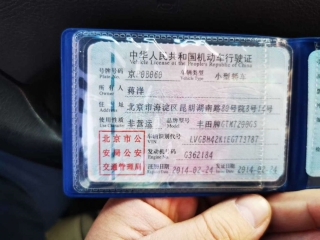 中华人民共和国机动车行驶证
Vehicle License of the People's Republic of China
号牌号码 车辆类型 小型轿车
Plate No. Vehicle Type
所有人 蒋洋
Owner
住 址 北京市海淀区昆明湖南路
Address
使用性质 非营运 品牌型号 丰田牌
Use Character Model
北京市公 车辆识别代号
安局公安 VIN
交通管理局 发动机号码 G362184
Engine No.
注册日期 2014-02-24 发证日期 2014-02-24